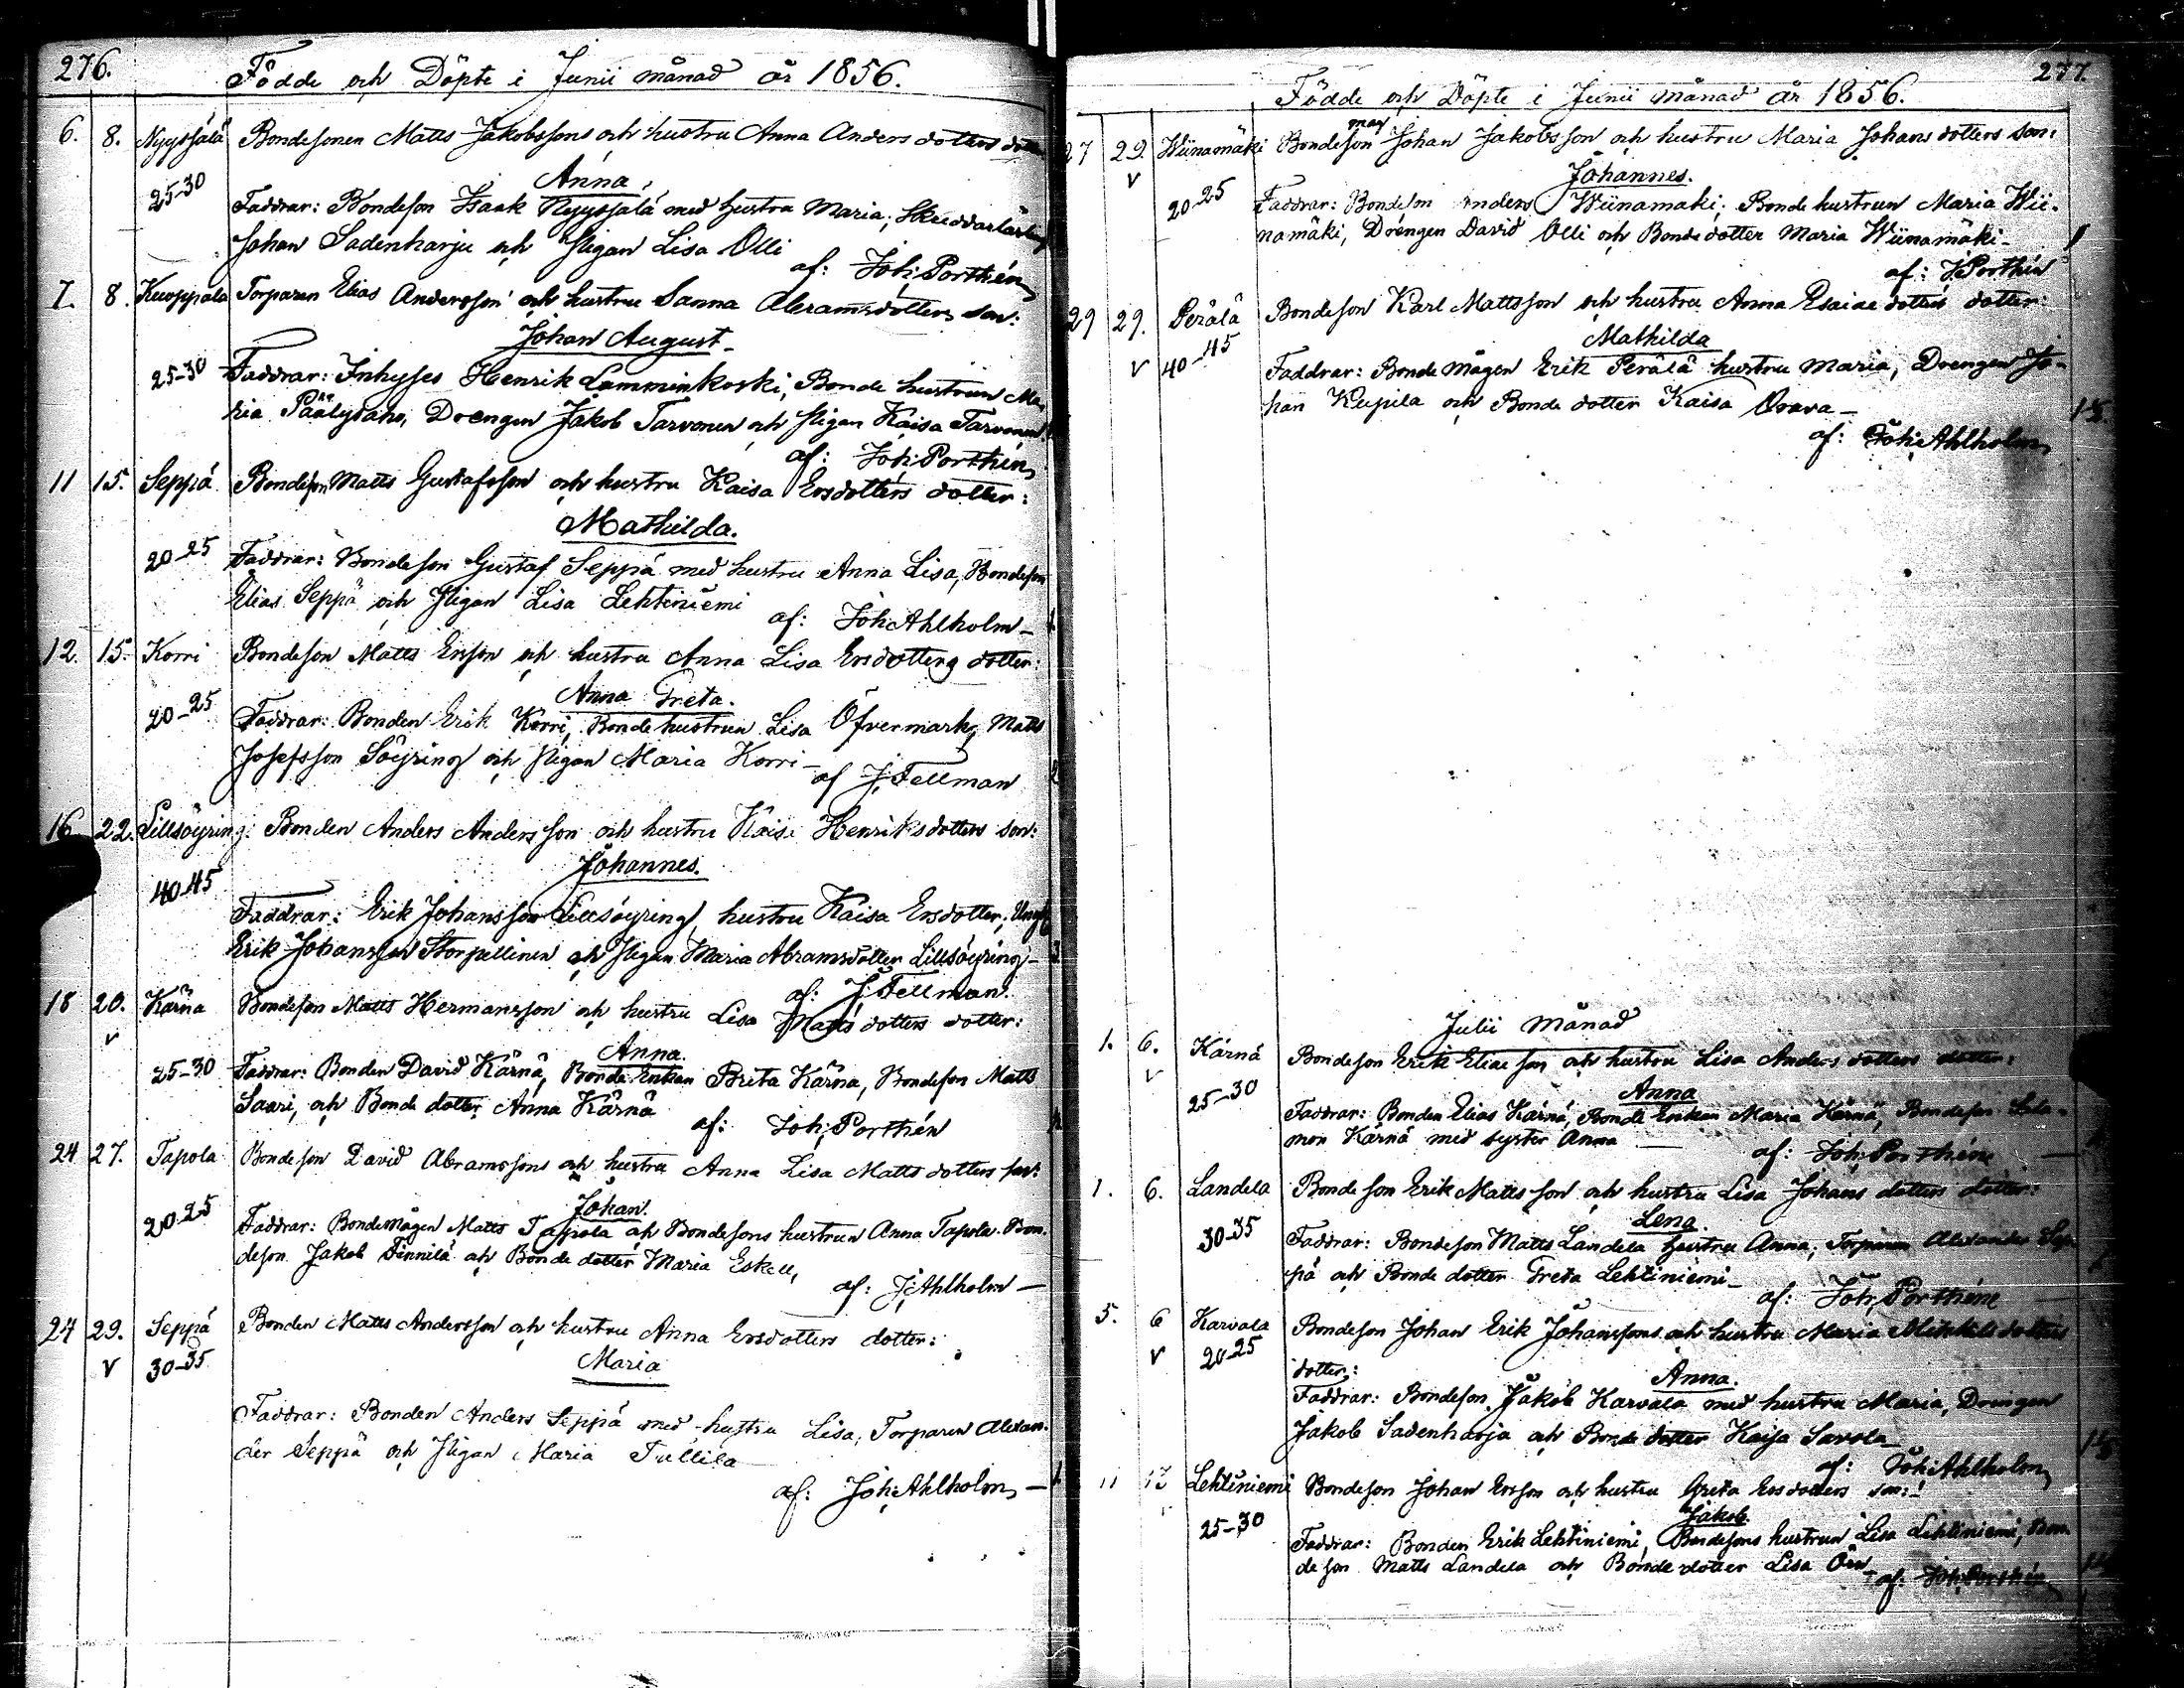 276.
Födde och Döpte i Junii månad år 1856.
6. 8. Nyysjälä Bondesonen Matts Jakobssons och hustru Anna Anders dotters dotter
Anna,
25-30 Faddrar: Bondeson Isaak Nyysjälä med hustru Maria; Skreddarlärling
Johan Sadenharju och Pigan Lisa Olli
af: Joh: Porthén
7. 8. Kuoppala Torparen Elias Andersson och hustru Sanna Abramsdotters son:
Johan August
25-30 Faddrar: Inhyses Henrik Lamminkoski, Bonde hustrun Ma-
ria Päälysaho, Drengen Jakob Tarvonen och Pigan Kaisa Tarvonen
af: Joh: Porthén
11 15. Seppä Bondeson Matts Gustafsson och hustru Kaisa Ersdotters dotter:
Mathilda.
20-25 Faddrar: Bondeson Gustaf Seppä med hustru Anna Lisa, Bondeson
Elias Seppä och Pigan Lisa Lehtiniemi
af: Joh: Ahlholm
12. 15. Korri Bondeson Matts Ersson och hustru Anna Lisa Ersdotters dotter:
Anna Greta.
20-25 Faddrar: Bonden Erik Korri, Bonde hustrun Lisa Öfvermark, Matts
Josefsson Söyring och Pigan Maria Korri
af J. Fellman
16 22. Lillsöyring. Bonden Anders Andersson och hustru Kaisa Henriksdotters son:
Johannes.
40-45
Faddrar: Erik Johansson Lillsöyring, hustru Kaisa Ersdotter;
Erik Johansson Storpellinen och Pigan Maria Abramsdotter Lillsöyring
af: J. Fellman.
18 20. Kärnä Bondeson Matts Hermansson och hustru Lisa Matts dotters dotter:
v
Anna.
25-30 Faddrar: Bonden David Kärnä, Bonde Enkan Brita Kärnä, Bondeson Matts
Saari, och Bonde dotter Anna Kärnä
af: Joh: Porthén
24 27. Tapola Bondeson David Abramssons och hustru Anna Lisa Matts dotters son:
Johan.
20-25 Faddrar: Bondemågen Matts Tapola och Bondesons hustrun Anna Tapola. Bon-
deson Jakob Finnilä och Bonde dotter Maria Eskell,
af: J: Ahlholm
24 29. Seppä Bonden Matts Andersson och hustru Anna Ersdotters dotter:
v 30-35 Maria
Faddrar: Bonden Anders Seppä med hustru Lisa, Torparen Alexan-
der Seppä och Pigan Maria Tullila
af: Joh: Ahlholm
277.
Födde och Döpte i Junii månad år 1856.
27 29. Wiinamäki Bondeson Johan Jakobsson och hustru Maria Johans dotters son:
may
v
Johannes.
20-25 Faddrar: Bondeson Anders Wiinamäki; Bonde hustrun Maria Wii-
namäki, Drengen David Olli och Bonde dotter Maria Wiinamäki
af: J. Porthén
29 29. Perälä Bondeson Karl Mattsson och hustru Anna Esaiae dotters dotter:
Mathilda
v 40-45 Faddrar: Bonde Mågen Erik Perälä hustru Maria, Drengen Jo-
han Kupila och Bonde dotter Kaisa Orava
af: Joh: Ahlholm
Julii Månad
1. 6. Kärnä Bondeson Erik Eliaeson och hustru Lisa Anders dotters dotter:
v
Anna
25-30 Faddrar: Bonden Elias Kärnä, Bonde Enkan Maria Kärnä, Bondeson Salo-
mon Kärnä med syster Anna
af: Joh: Porthén
1. 6. Landela Bondeson Erik Mattsson och hustru Lisa Johans dotters dotter:
Lena.
30-35 Faddrar: Bondeson Matts Landela hustru Anna, Torparen Alexander Sep-
pä och Bonde dotter Greta Lehtiniemi
af: Joh: Porthén
5. 6 Karvala Bondeson Johan Erik Johanssons och hustru Maria Mikkels dotters
v 20-25
dotter: Anna.
Faddrar: Bondeson Jakob Karvala med hustru Maria, Drengen
Jakob Sadenharja och Bonde dotter Kaisa Savola
af: Joh: Ahlholm
11 13 Lehtiniemi Bondeson Johan Ersson och hustru Greta Ersdotters son:
Jakob.
25-30 Faddrar: Bonden Erik Lehtiniemi, Bondesons hustrun Lisa Lehtiniemi, Bon-
deson Matts Landela och Bonde dotter Lisa
af: Joh: Porthén